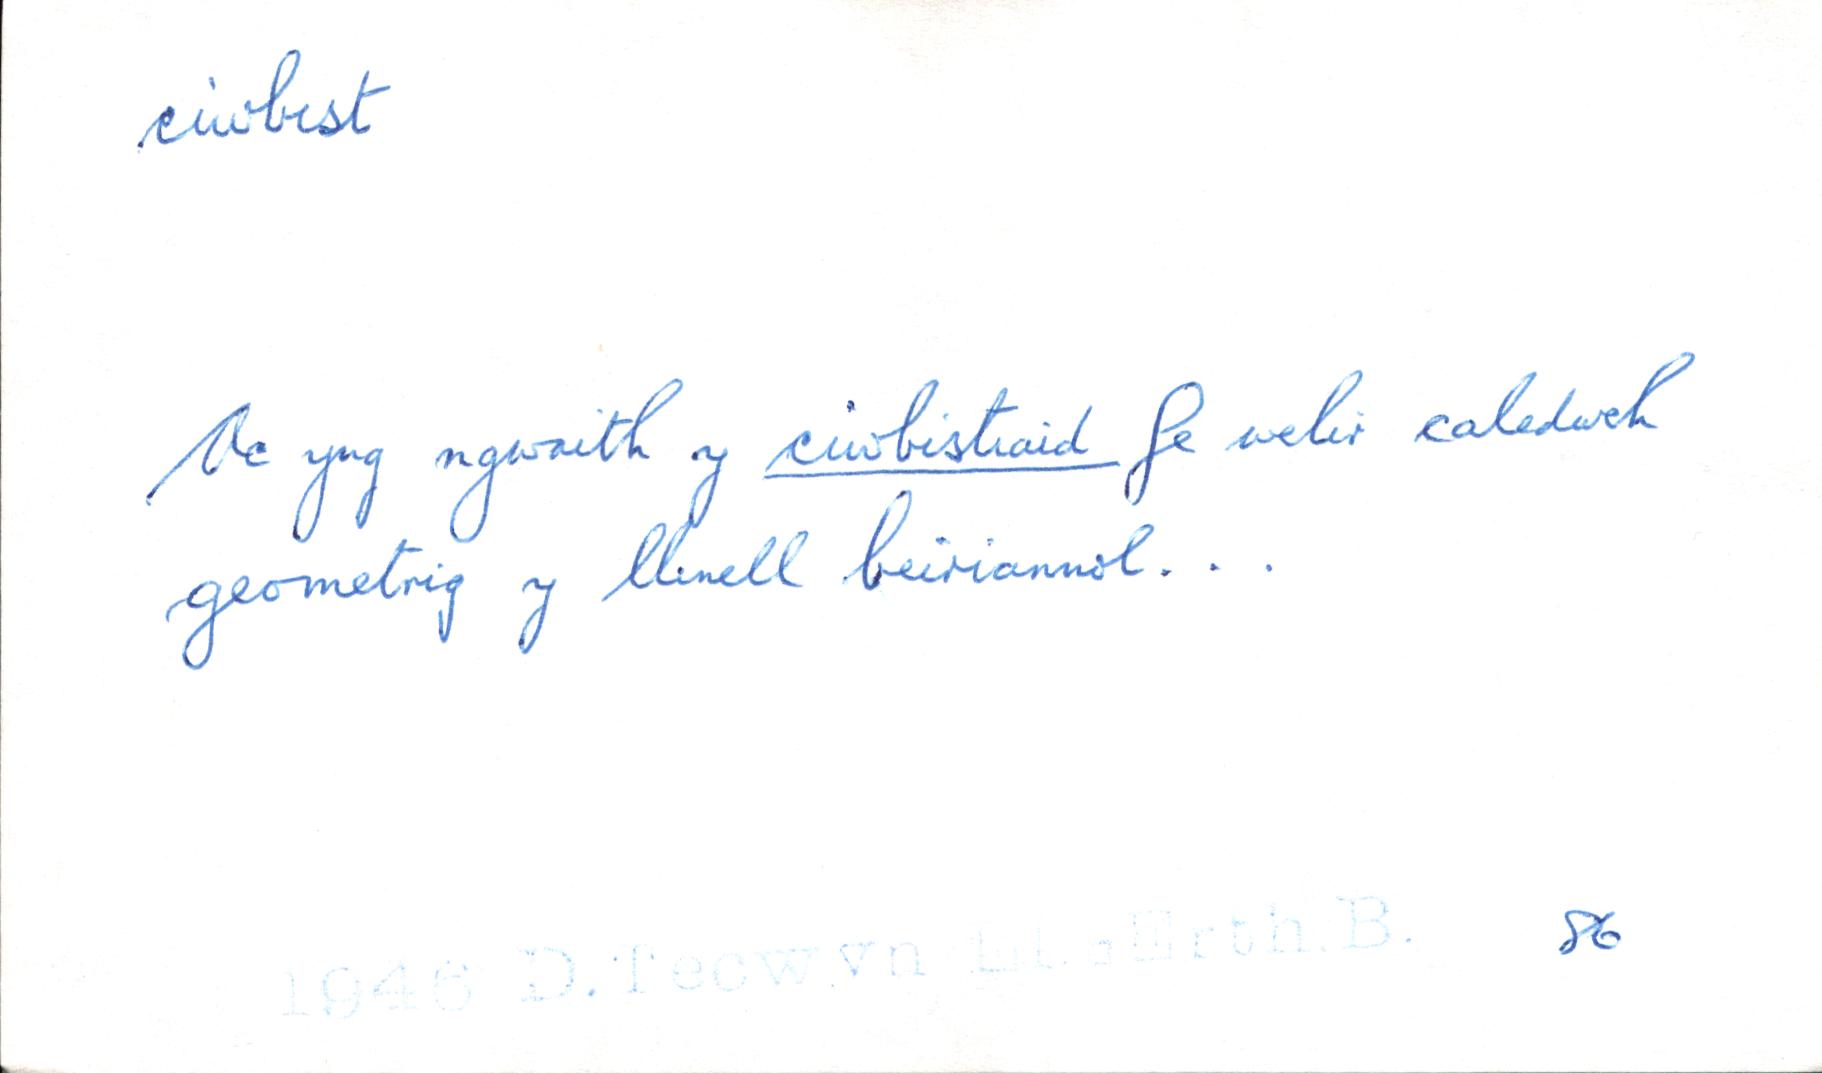 ciwbist
Ac yng ngwaith y ciwbistiaid fe welir caledwch
geometrig y llinell beiriannol...
1946 D.Tecwyn Erth.B. 86